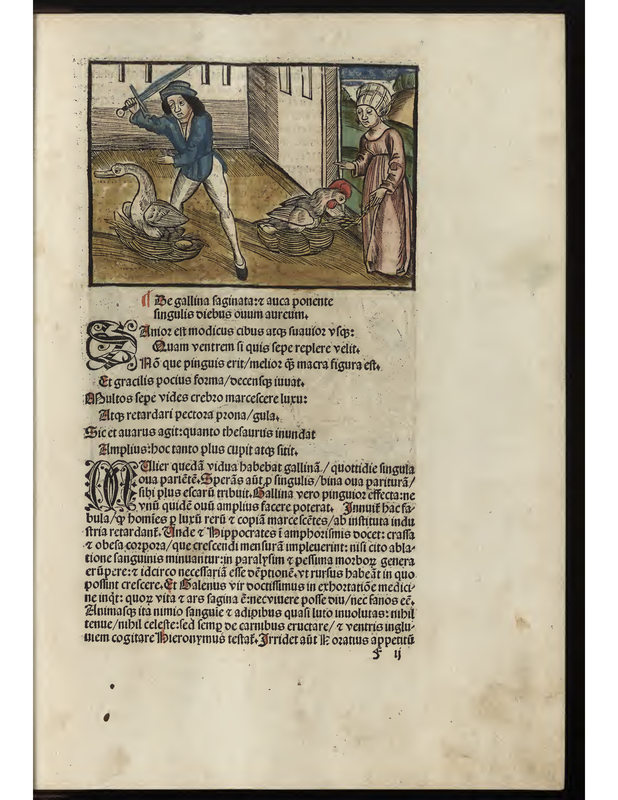 ¶ De gallina saginata: ⁊ auca ponente
singulis diebus ouum aureum.
SAnior est modicus cibus atqꝫ suauior vsqꝫ:
Quam ventrem si quis sepe replere velit.
Nō que pinguis erit/melior qꝫ macra figura est.
Et gracilis pocius forma/decensqꝫ iuuat.
Multos sepe vides crebro marcescere luxu:
Atqꝫ retardari pectora prona/gula.
Sic et auarus agit: quanto thesaurus inundat
Amplius: hoc tanto plus cupit atqꝫ sitit.
MUlier quedā vidua habebat gallinā/quottidie singula
oua pariētē. Sperās aūt ꝓ singulis/bina oua paritura/
sibi plus escarū tribuit. Gallina vero pinguior effecta: ne
vnū quidē ouū amplius facere poterat. Innuit hac fa-
bula/ꝙ homīes ꝑ luxū rerū ⁊ copiā marcescētes/ab instituta indu
stria retardant᷑. Unde ⁊ Hippocrates ī amphorismis docet: crassa
⁊ obesa corpora/que crescendi mensurā impleuerint: nisi cito abla-
tione sanguinis minuantur: in paralysim ⁊ pessima morboꝝ genera
erūpere: ⁊ idcirco necessariā esse dēptionē. vt rursus habeāt in quo
possint crescere. Et Galenus vir doctissimus in exhortatiōe medici-
ne inq̄t: quoꝝ vita ⁊ ars sagina ē: nec viuere posse diu/nec sanos eē.
Animasqꝫ ita nimio sanguīe ⁊ adipibus quasi luto inuolutas: nihil
tenue/nihil celeste: sed semꝑ de carnibus eructare/⁊ ventris inglu-
uiem cogitare Hieronymus testat᷑. Irridet aūt Horatius appetitū
f ij